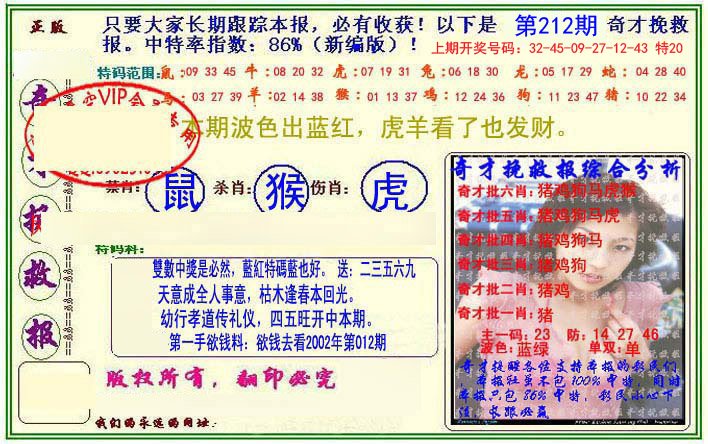 正版
只要大家长期跟踪本报，必有收获！以下是 第212期 奇才挽救
报。中特率指数：86%（新编版）！ 上期开奖号码：32-45-09-27-12-43 特20
特码范围：鼠：09 33 45 牛：08 20 32 虎：07 19 31 兔：06 18 30 龙：05 17 29 蛇：04 28 40
马：03 27 39 羊：02 14 38 猴：01 13 37 鸡：12 24 36 狗：11 23 47 猪：10 22 34
VIP会
本期波色出蓝红，虎羊看了也发财。
禁肖：鼠 杀肖：猴 伤肖：虎
特码料：
雙數中獎是必然，藍紅特碼藍也好。 送：二三五六九
天意成全人事意，枯木逢春本回光。
幼行孝道传礼仪，四五旺开中本期。
第一手欲钱料：欲钱去看2002年第012期
版权所有，翻印必究
我们的永远的网址：
才
报
救
报
奇才挽救报综合分析
奇才批六肖：猪鸡狗马虎猴
奇才批五肖：猪鸡狗马虎
奇才批四肖：猪鸡狗马
奇才批三肖：猪鸡狗
奇才批二肖：猪鸡
奇才批一肖：猪
主一码：23 防：14 27 46
波色：蓝绿 单双：单
奇才提醒各位支持本报的彩民们
，本报社虽不包100%中特，同时
本报只包 86%中特，彩民小心下
注，长跟必赢